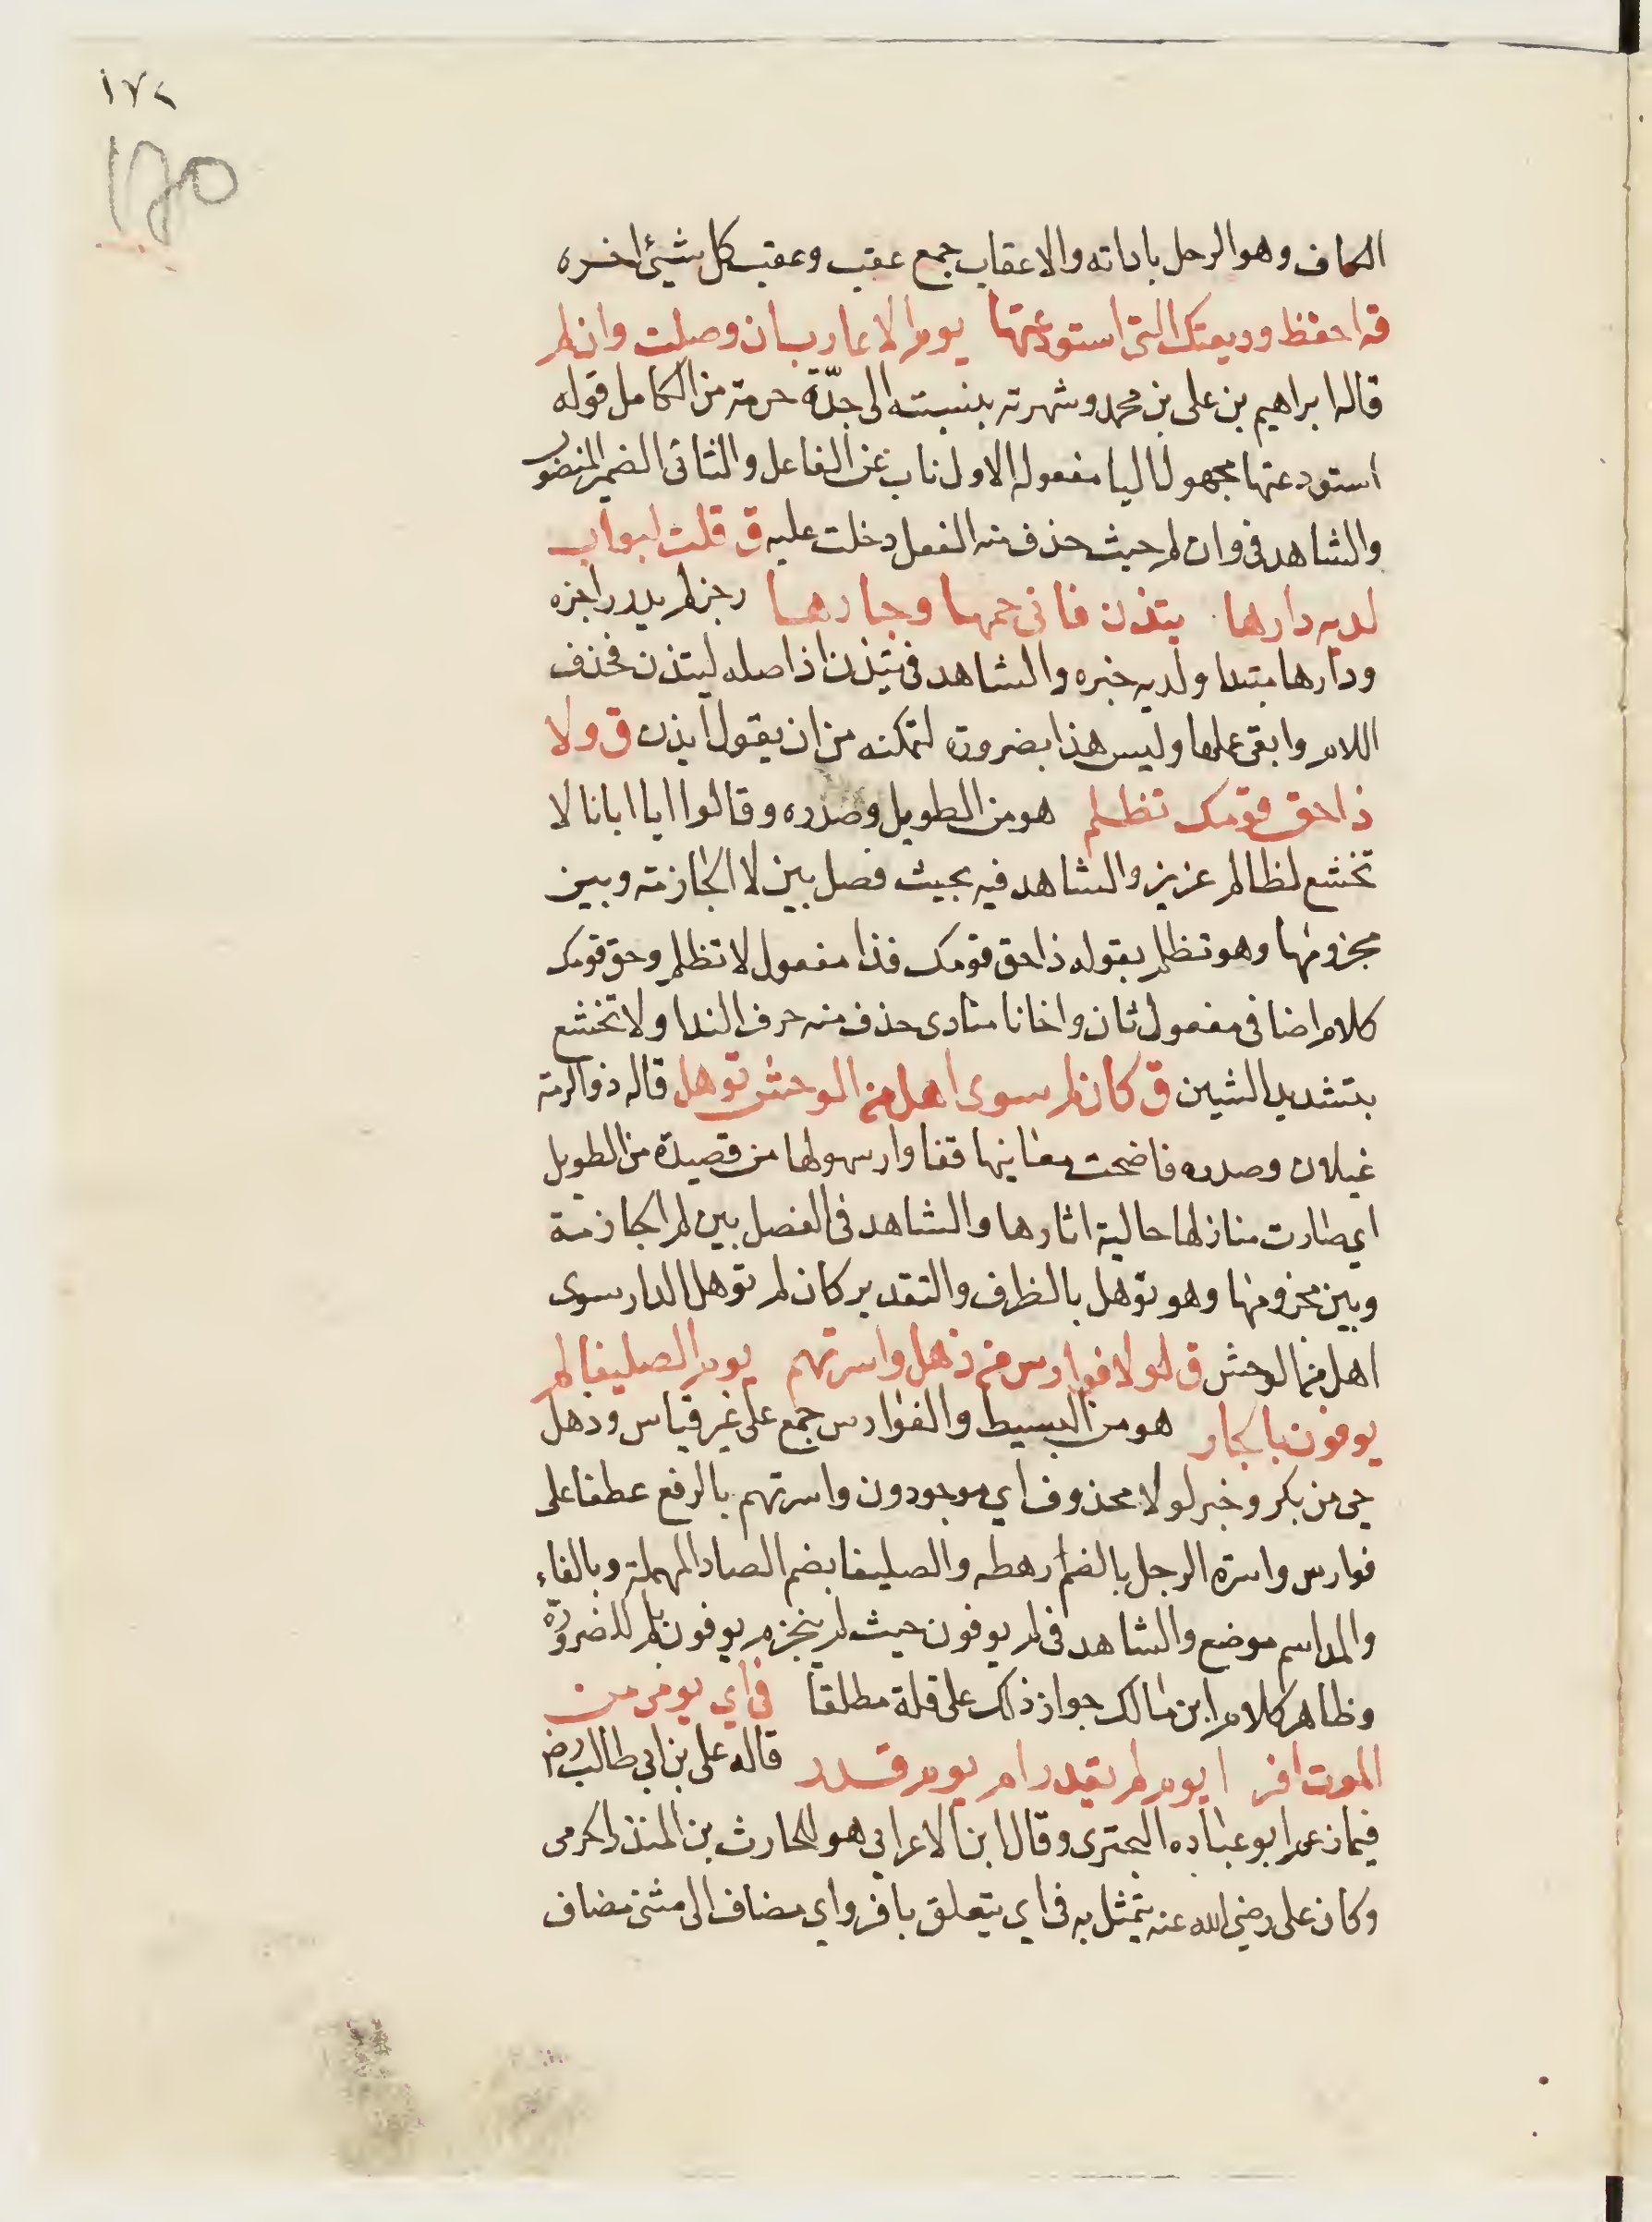 ١٧٢
١٧٥
الكاف وهو الرحل باداته والاعقاب جمع عقب وعقب كل شيئ اخره
قه احفظ وديعتك التى استودعتها يوم الاعارب ان وصلت وان لم
قاله ابراهيم بن على بن محمد وشهرته بنسبته الى جدّة حرمة من الكامل قوله
استودعتها مجهول اليا مفعوله الاول ناب عن الفاعل والثانى الضمير المنصوب
والشاهد فى وان لم حيث حذف منه الفعل دخلت عليه ق قلت لبواب
لديه دارها تيذن فانى حمها وجارها رجز لم يدر راجزه
ودارها مبتدا ولديه خبره والشاهد فى تيذن اذ اصله لتيذن فحذف
اللام وابقى عملها وليس هذا بضرورة لتمكنه من ان يقول ايذن ق ولا
ذا حق قومك تظلم هو من الطويل وصدره وقالوا ايا ابانا لا
تخشع لظالم عزيز والشاهد فيه بحيث فصل بين لا الجازمة وبين
مجزومها وهو تظلم بقوله ذا حق قومك فذا مفعول لا تظلم وحق قومك
كلام اضافى مفعول ثان واخانا منادى حذف منه حرف الندا ولا تخشع
بتشديد الشين ق كان لم سوى اهل من الوحش توهل قاله ذو الرمة
غيلان وصدره فاضحت مغانيها قفارا رسولها من قصيدة من الطويل
اي صارت منازلها حالية اثارها والشاهد فى الفصل بين لم الجازمة
وبين مجزومها وهو توهل بالظرف والتقدير كان لم توهل الدار سوى
اهل من الوحش ق لولا فوارس من ذهل واسرتهم يوم الصليفا لم
يوفون بالجار هو من البسيط والفوارس جمع على غير قياس وذهل
حى من بكر وخبر لولا محذوف اي موجودون واسرتهم بالرفع عطفا على
فوارس واسرة الرجل بالضم رهطه والصليفا بضم الصاد المهملة وبالفاء
والمد اسم موضع والشاهد فى لم يوفون حيث لم ينجزم يوفون بلم للضرورة
وظاهر كلام ابن مالك جواز ذلك على قلة مطلقا فى اي يومى من
الموت افر ايوم لم يقدر ام يوم قدر قاله على بن ابي طالب رضه
فيما زعم ابو عباده البحترى وقال ابن الاعرابي هو للحارث بن المنذر الجرمى
وكان على رضي الله عنه يتمثل به فى اي يتعلق بافر واي مضاف الى مثنى مضاف